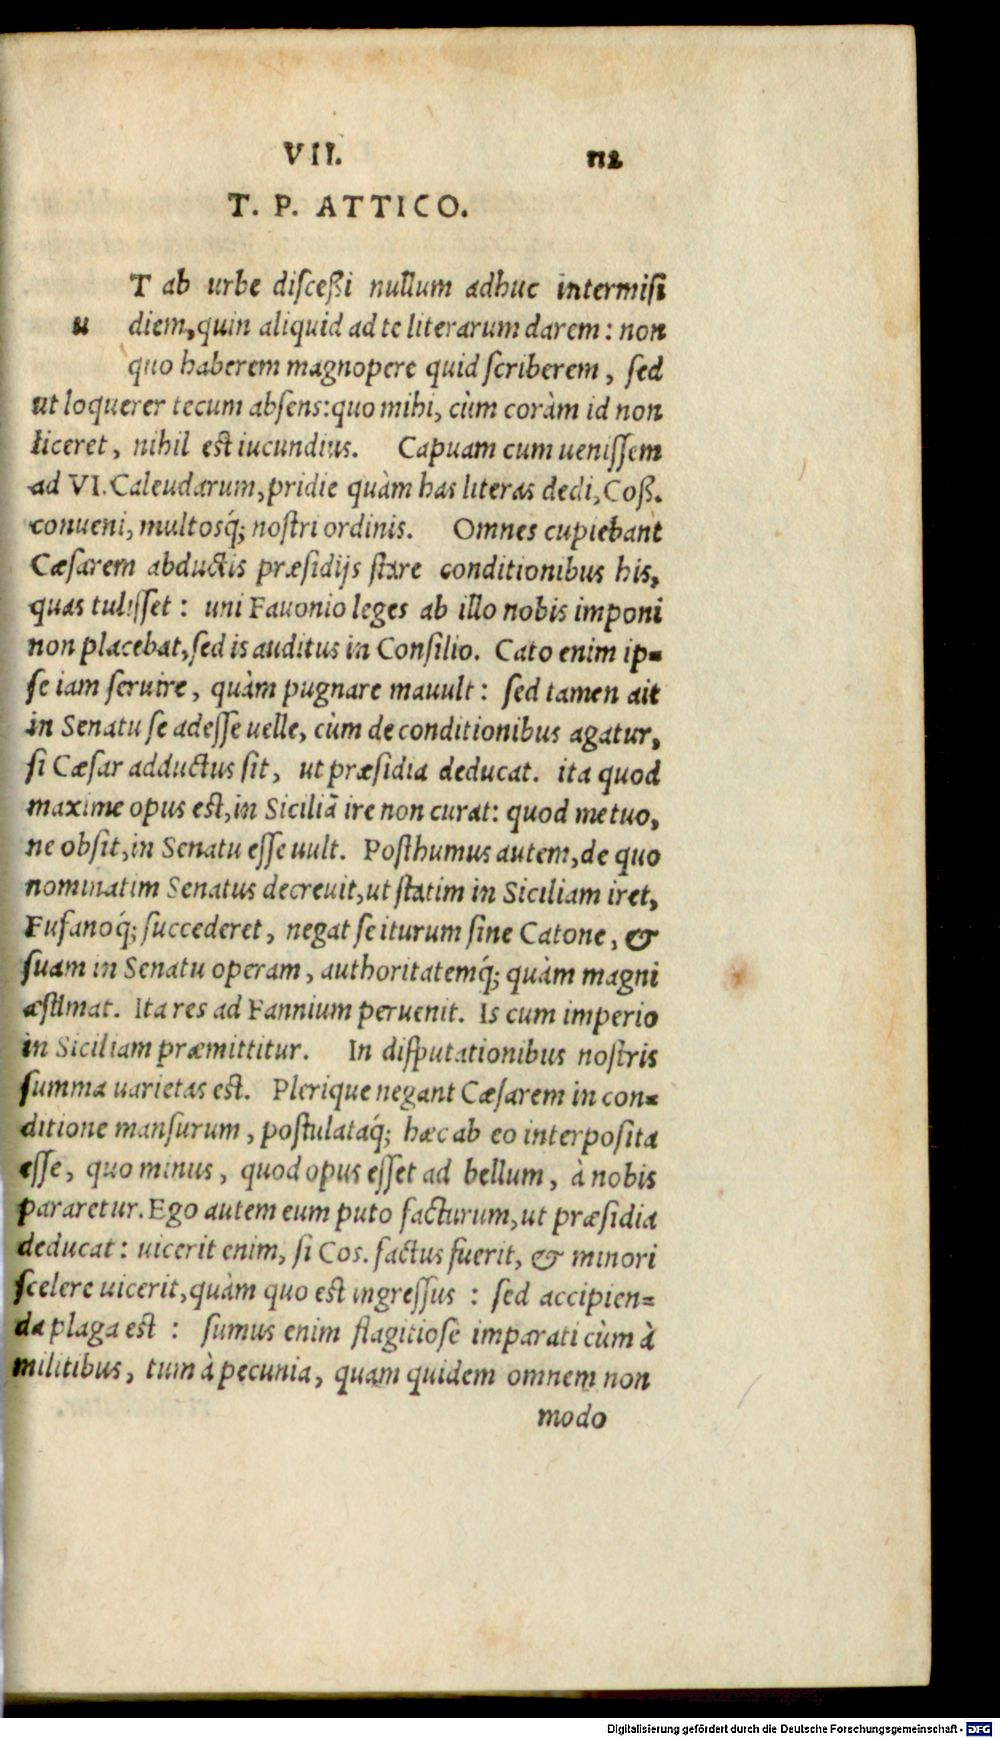 VII. 112
T. P. ATTICO.
T ab urbe disceßi nullum adhuc intermisi
u diem, quin aliquid ad te literarum darem: non
quo haberem magnopere quid scriberem, sed
ut loquerer tecum absens: quo mihi, cùm coràm id non
liceret, nihil est iucundius. Capuam cum uenissem
ad VI. Caleudarum, pridie quàm has literas dedi, Coß.
conueni, multosq́; nostri ordinis. Omnes cupiebant
Cæsarem abductis præsidijs stare conditionibus his,
quas tulisset: uni Fauonio leges ab illo nobis imponi
non placebat, sed is auditus in Consilio. Cato enim ip=
se iam seruire, quàm pugnare mauult: sed tamen ait
in Senatu se adesse uelle, cùm de conditionibus agatur,
si Cæsar adductus sit, ut præsidia deducat. ita quod
maxime opus est, in Siciliã ire non curat: quod metuo,
ne obsit, in Senatu esse uult. Posthumus autem, de quo
nominatim Senatus decreuit, ut statim in Siciliam iret,
Fufanoq́; succederet, negat se iturum sine Catone, &
suam in Senatu operam, authoritatemq́; quàm magni
æstimat. Ita res ad Fannium peruenit. Is cum imperio
in Siciliam præmittitur. In disputationibus nostris
summa uarietas est. Plerique negant Cæsarem in con=
ditione mansurum, postulataq́; hæc ab eo interposita
esse, quo minus, quod opus esset ad bellum, à nobis
pararetur. Ego autem eum puto facturum, ut præsidia
deducat: uicerit enim, si Cos. factus fuerit, & minori
scelere uicerit, quàm quo est ingressus: sed accipien=
da plaga est: sumus enim flagitiosè imparati cùm à
militibus, tum à pecunia, quam quidem omnem non
modo
Digitalisierung gefördert durch die Deutsche Forschungsgemeinschaft - DFG